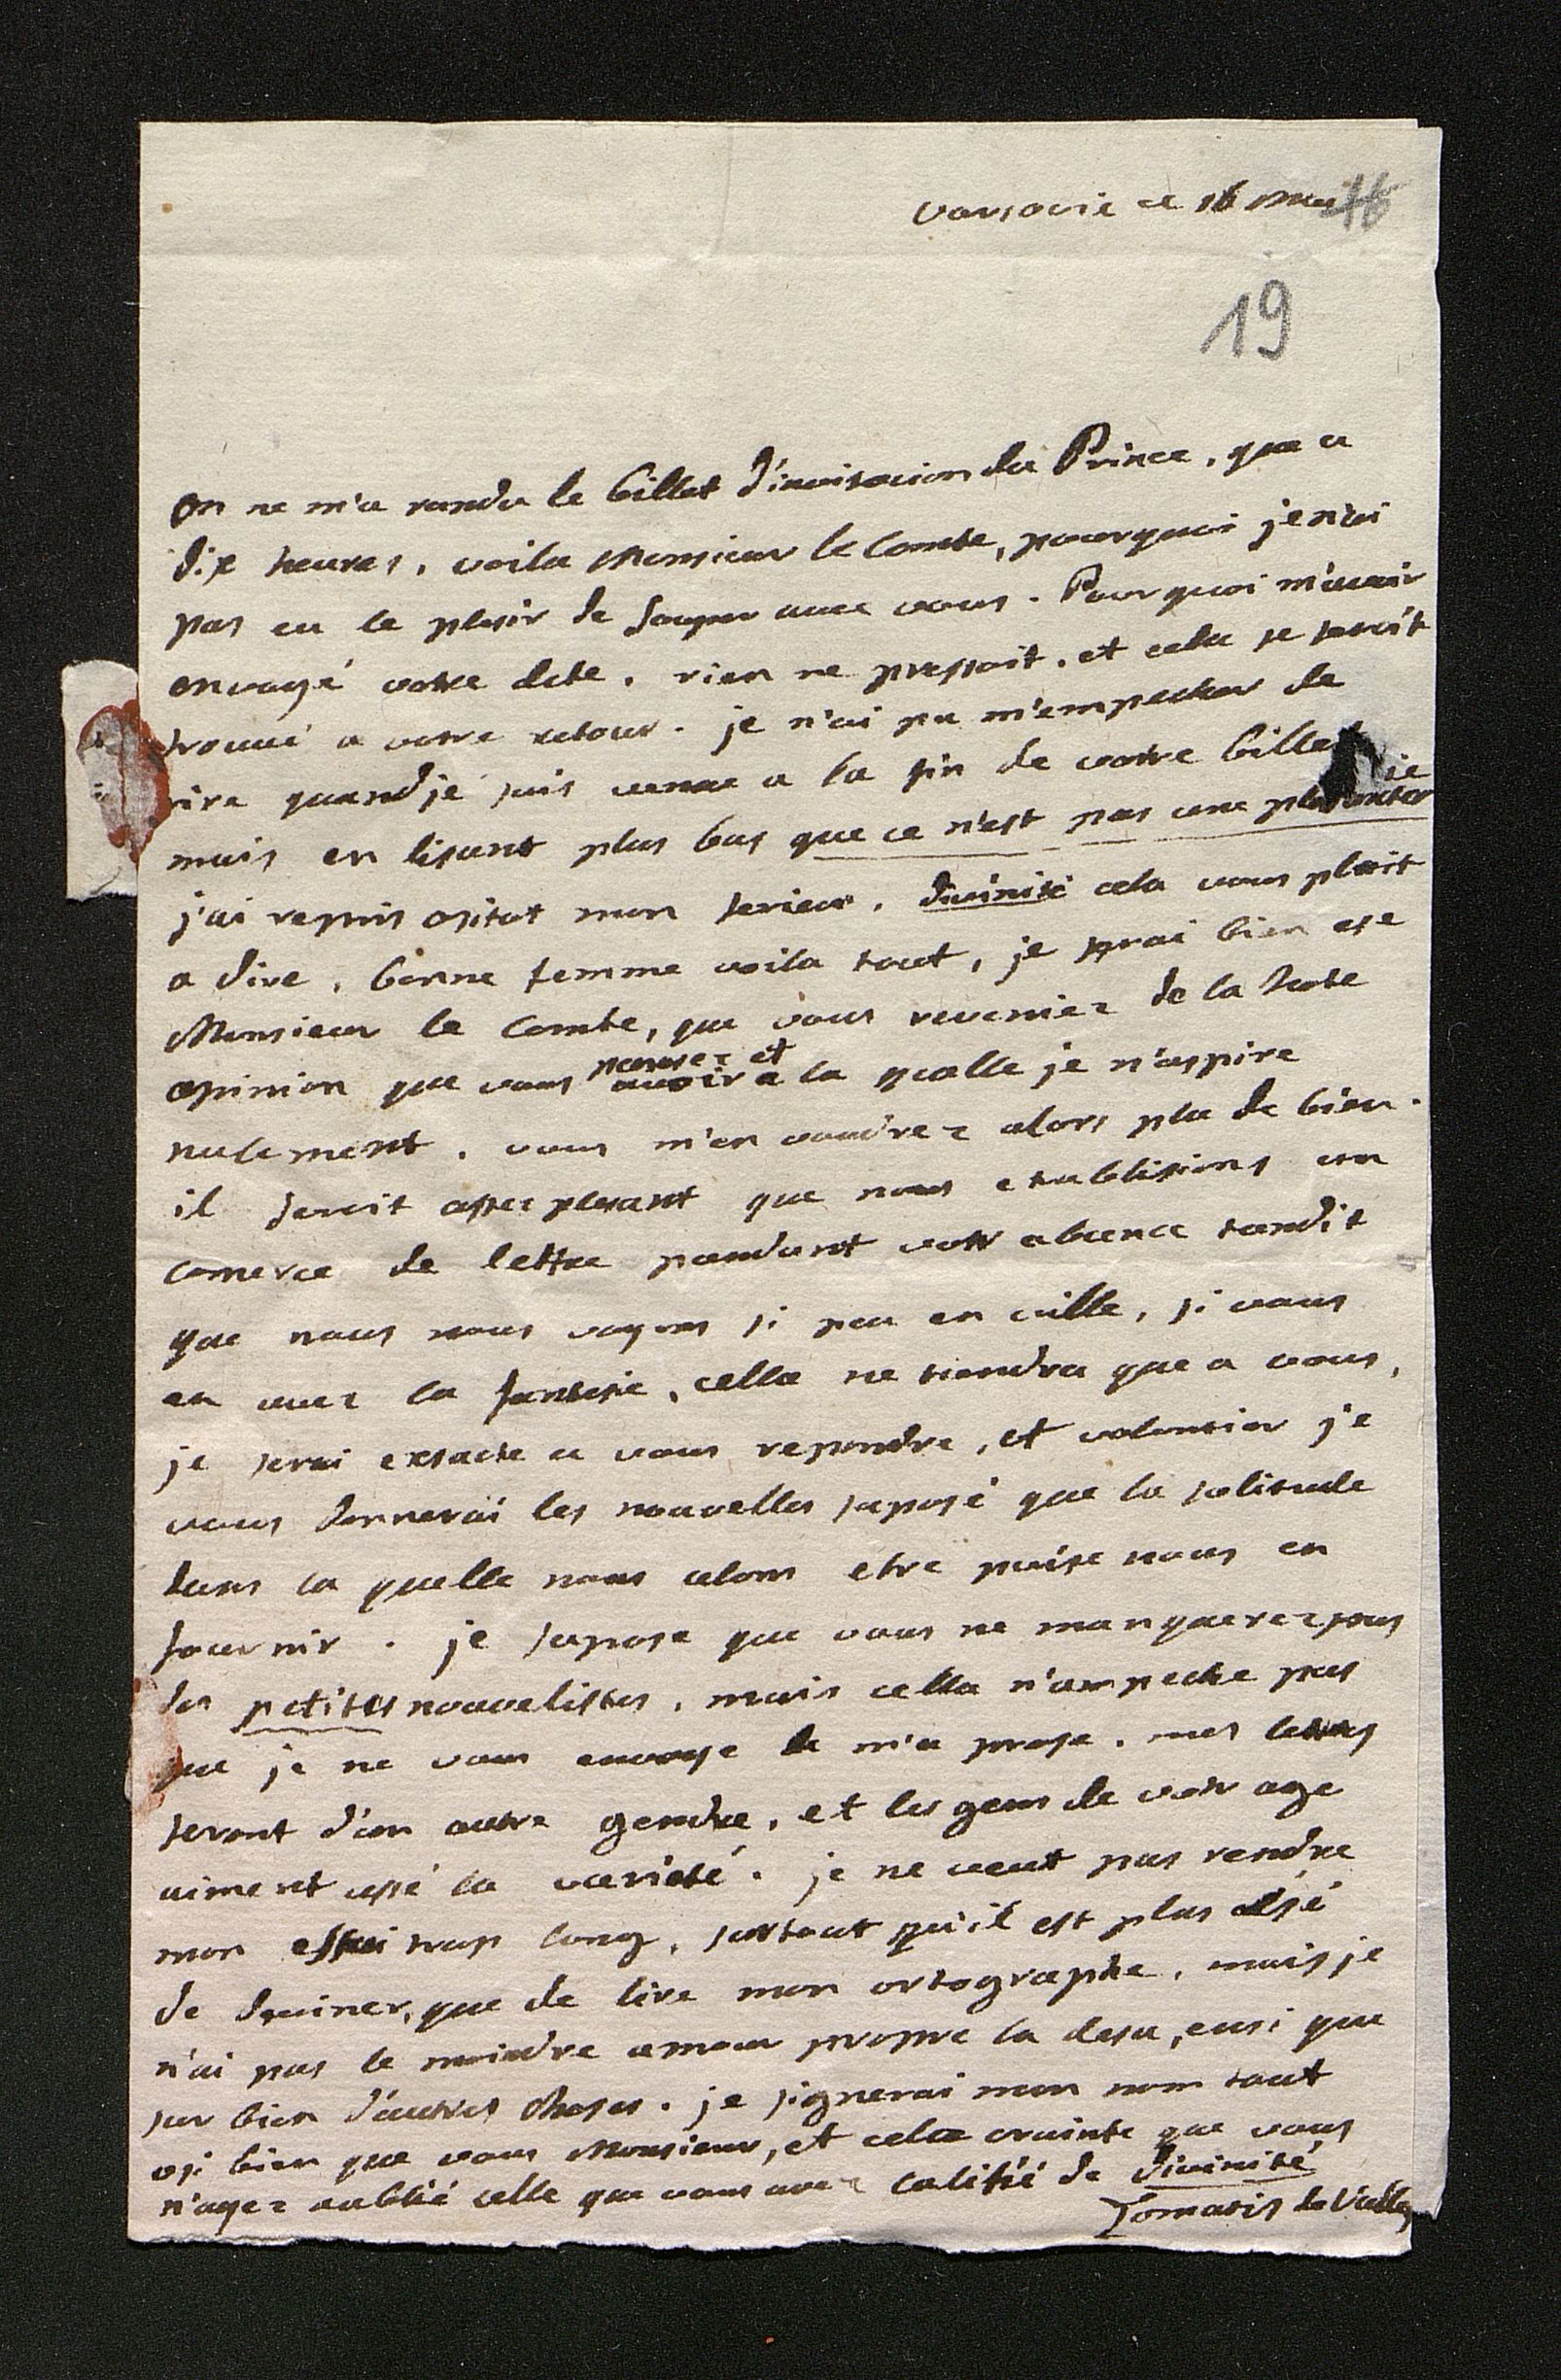 varsovie ce 16 mai 16
19
on ne m'a randu le billet d'invitacion du Prince, que a
dix heures, voila Monsieur le Comte, pourquoi je n'ai
pas eu le plesir de souper avec vous. Pourquoi m'avoir
envoyé votre dete, rien ne pressoit, et cela se seroit
trouvé a votre retour. je n'ai pu m'empecher de
rire quand je suis venue a la fin de votre billet
mais en lisant plus bas que ce n'est pas une plesanterie
j'ai repris ositot mon serieux. divinité cela vous plait
a dire, bonne femme voila tout, je serai bien ese
Monsieur le Comte, que vous reveniez de la haute
opinion que vous paresez et avoir a la quelle je n'aspire
nulement. vous m'en voudrez alors plu de bien.
il seroit assez plesant que nous etablissions un
comerce de lettre pendant votr absence tandit
que nous nous voyons si peu en ville, si vous
en avez la fantesie, cella ne tiendra que a vous,
je serai exsacte a vous repondre, et volontier je
vous donnerai les nouvelles suposé que la solitude
dans la quelle nous alons etre puise nous en
fournir. je supose que vous ne manquerez pas
des petites nouvelistes, mais cella n'ampeche pas
que je ne vous envoye de m'a prose. mes letres
seront d'un autre gendre, et les gens de votr age
aiment assé la varieté. je ne veut pas rendre
mon essai trop long, surtout qu'il est plus aisé
de deviner, que de lire mon ortographe, mais je
n'ai pas le moindre amour propre la desu, ensi que
sur bien d'autres choses. je signerai mon nom tout
osi bien que vous Monsieur, et cela crainte que vous
n'ayez oublié celle que vous avez calitié de divinité
Tomatis de Valley